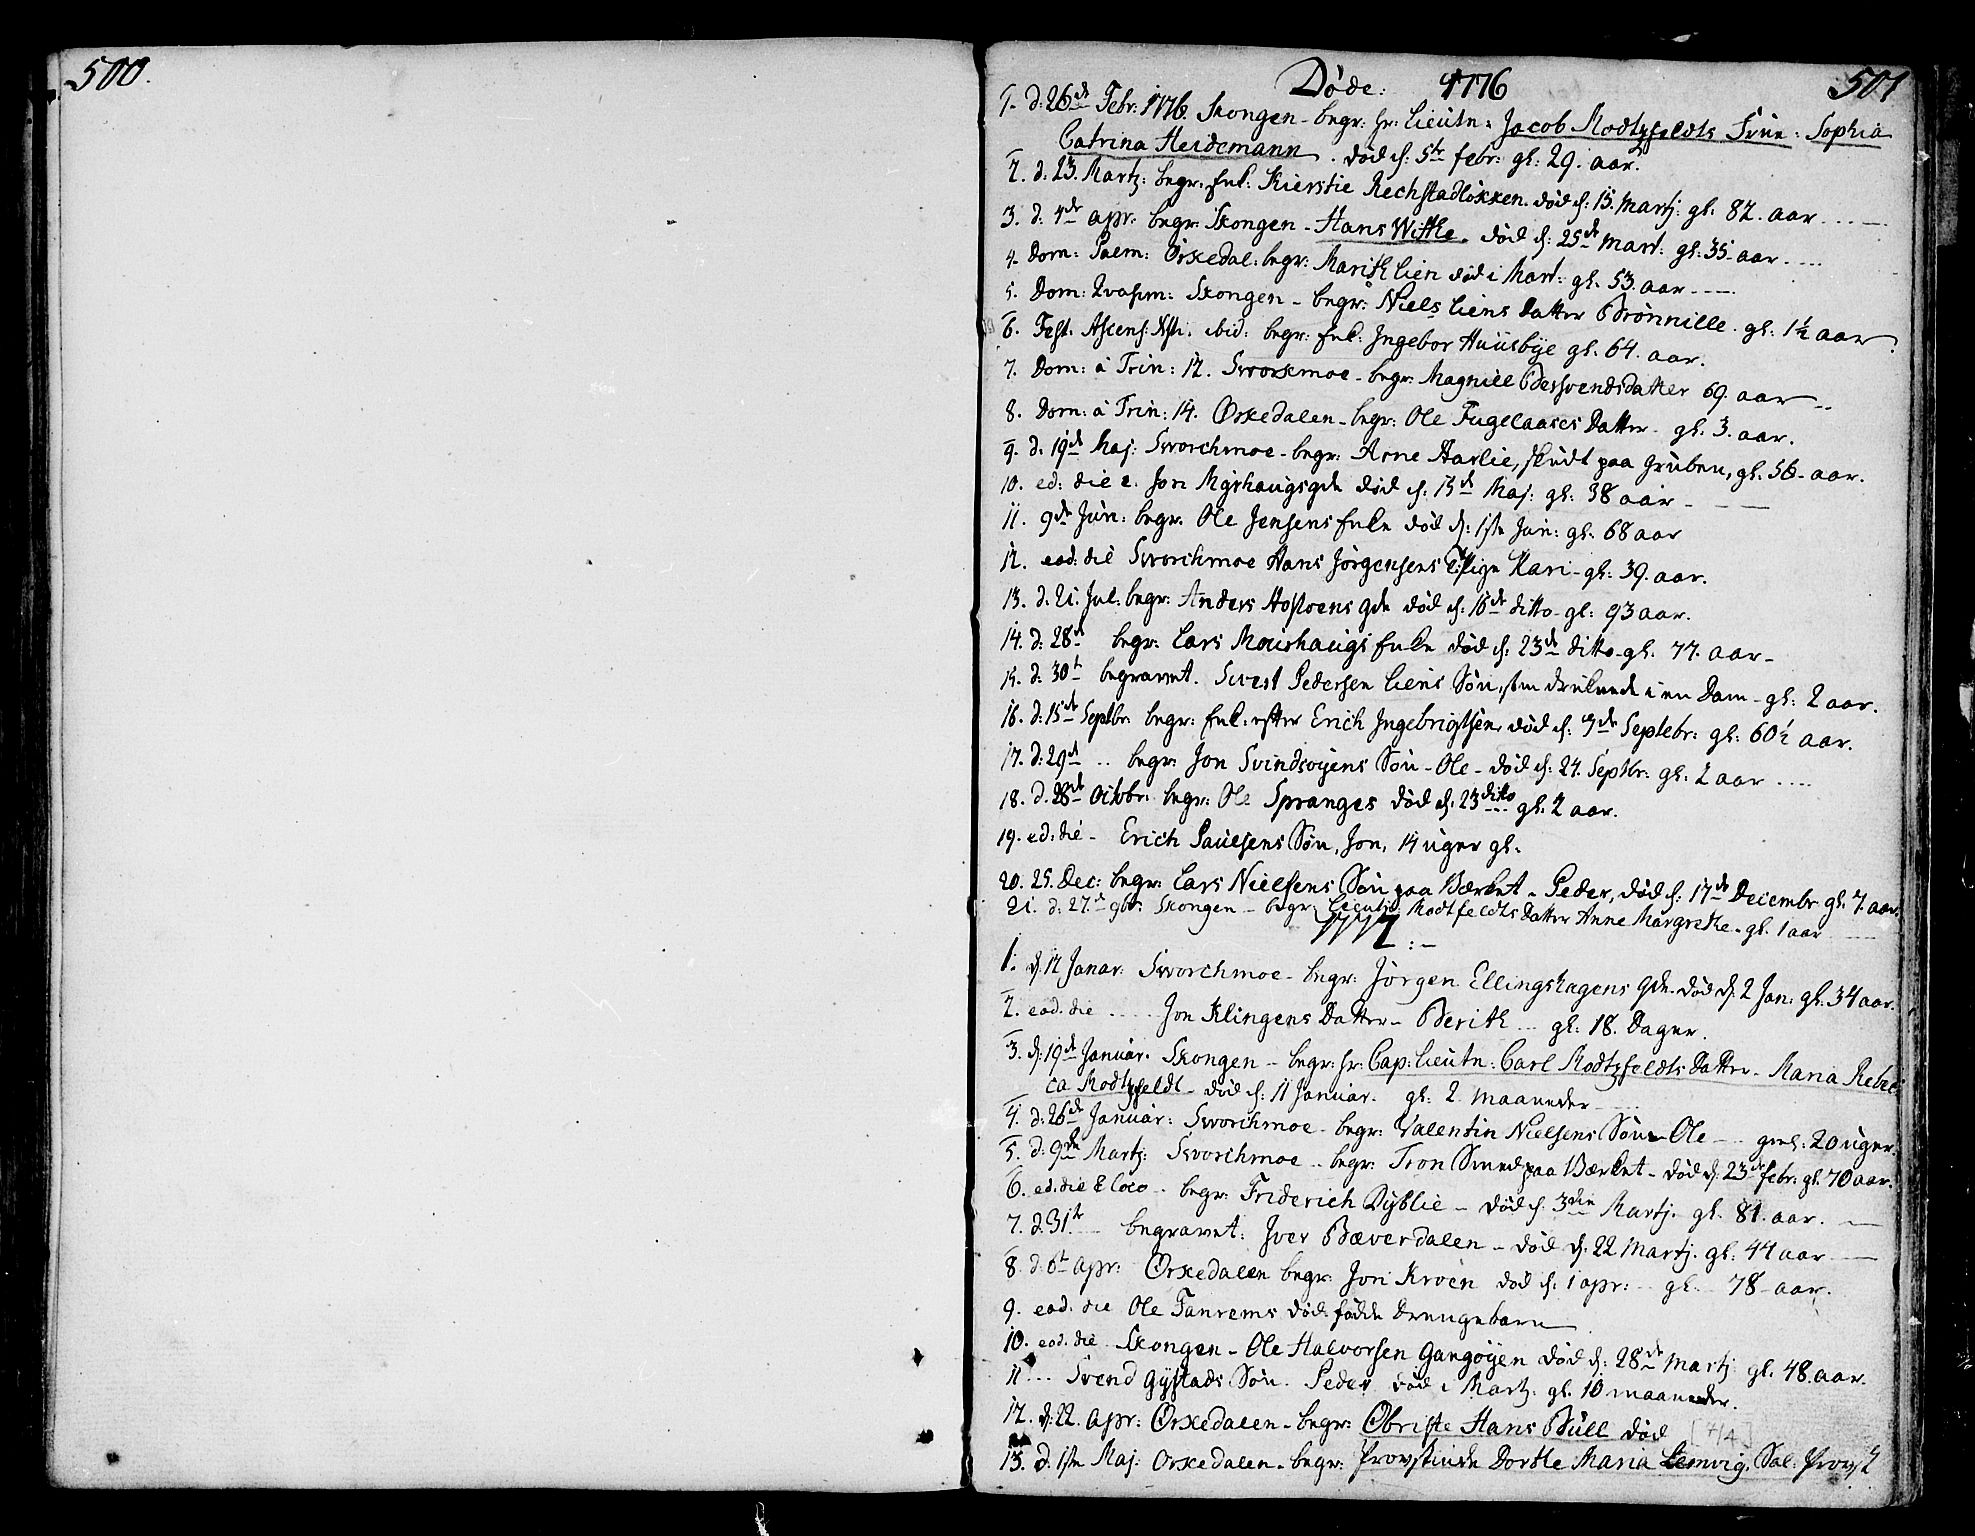 500.
Døde: 1776
501
1. d: 26de Febr: 1776. Skongen - begr: Hr: Lieutn: Jacob Rodtzfeldts Frue: Sophia
Catrina Heidemann. død d: 5te febr: gl: 29. aar.
2. d: 23. Martz: begr: Enk: Kierstie Rechstadløkken. død d: 15. Martj: gl. 82. aar
3. d: 4de apr: begr: Skongen - Hans Withe. død d: 25de Mart: gl: 35. aar
4. Dom: Palm: Orkedal: begr: Marith Lien død i Mart: gl. 53. aar
5. Dom: Quasim: Skongen - begr: Niels Liens Datter Brønnille. gl: 1½ aar
6. Fest. Ascens: Xsti. ibid: begr: Enk: Ingebor Huusbye gl. 64. aar.
7. Dom: à Trin: 12. Svorkmoe - begr: Magnill Besvendsdatter 69. aar
8. Dom: à Trin: 14. Orkedalen - begr: Ole Fugelaases Datter - gl. 3. aar.
9. d. 19de Maj: Svorchmoe - begr: Arne Aarlie, skudt paa Gruben, gl: 56 - aar.
10. ed: die e. Jon Myrhaugs gde død d: 15de Maj: gl: 38 aar
11. 9de Jun: begr. Ole Jensens Enke død d: 1ste Jun: gl: 68 aar
12. ead: die Svorchmoe Hans Jørgensens Pige Kari - gl: 39. aar.
13. d. 21. Jul. begr: Anders Hostoens gde død d: 16de ditto - gl: 93 aar.
14. d: 28de begr: Lars Moushaugs Enke død d: 23de ditto - gl. 77. aar -
15. d: 30te begravet. Sivest Pedersen Liens Søn, som druknede i en Dam - gl: 2 aar.
16. d: 15de Septbr: begr: Enk: efter Erich Ingebrigtsen, død d: 9de Septebr: gl: 60½ aar.
17. d: 29de .. begr: Jon Svindsøyens Søn - Ole - død d: 24. Septbr: gl: 2 aar
18. d. 28de Octobr: begr: Ole Spranges død d: 23 ditto gl. 2 aar.
19. ed: die - Erich Paulsens Søn, Jon, 14 uger gl.
20. 25. Dec: begr: Lars Nielsens Søn paa Værket - Peder, død d: 17de Decembr gl. 7. aar.
21. d: 27de 9br: Skongen - begr: Lieutn: Rodtfeldts Datter Anne Margrethe - gl. 1 aar
1777 :-
1. d: 12 Janar: Svorchmoe - begr: Jørgen Ellingshagens gde. død d: 2 Jan: gl. 34 aar.
2. ead. die ..... Jon Klingens Datter - Berith ... gl: 18. Dager.
3. d: 19de Januar. Skongen - begr: Hr: Cap: Lieutn: Carl Rodtzfeldts Datter - Maria Rebec
ca Rodtzfeldt - død d: 11 Januar. gl: 2 maaneder
4. d: 26de Januar: Svorchmoe - begr: Valentin Nielsens Søn - Ole - - gml: 20 uger.
5. d: 9de Martj: Svorchmoe .. begr: Tron Smed paa Værket - død d: 23de febr: gl. 70 aar.
6. ed: die & loco - begr: Friderich Dyblie - død d. 3die Martj. gl. 81. aar.
7. d. 31te begravet: Iver Bæverdalen - død d: 22 Martj. gl: 44 aar
8. d. 6te apr: Orkedalen begr: Jon Kroen død d: 1 apr: gl. 78 aar.
9. ead. die Ole Fanrems død fødde Drengebarn
10. eod. die - Skongen - Ole Halvorsen Gangøyen død d: 28de Martj gl. 48. aar.
11 ... Svend Gystads Søn. Peder død i Martj. gl. 10 maaneder.
12. d: 22. apr: Orkedalen - begr: Obriste Hans Büll død [4/4]
13. d. 1ste Maj: Orkedalen - begr: Provstinde Dorthe Maria Lemvig, Sal: Provst